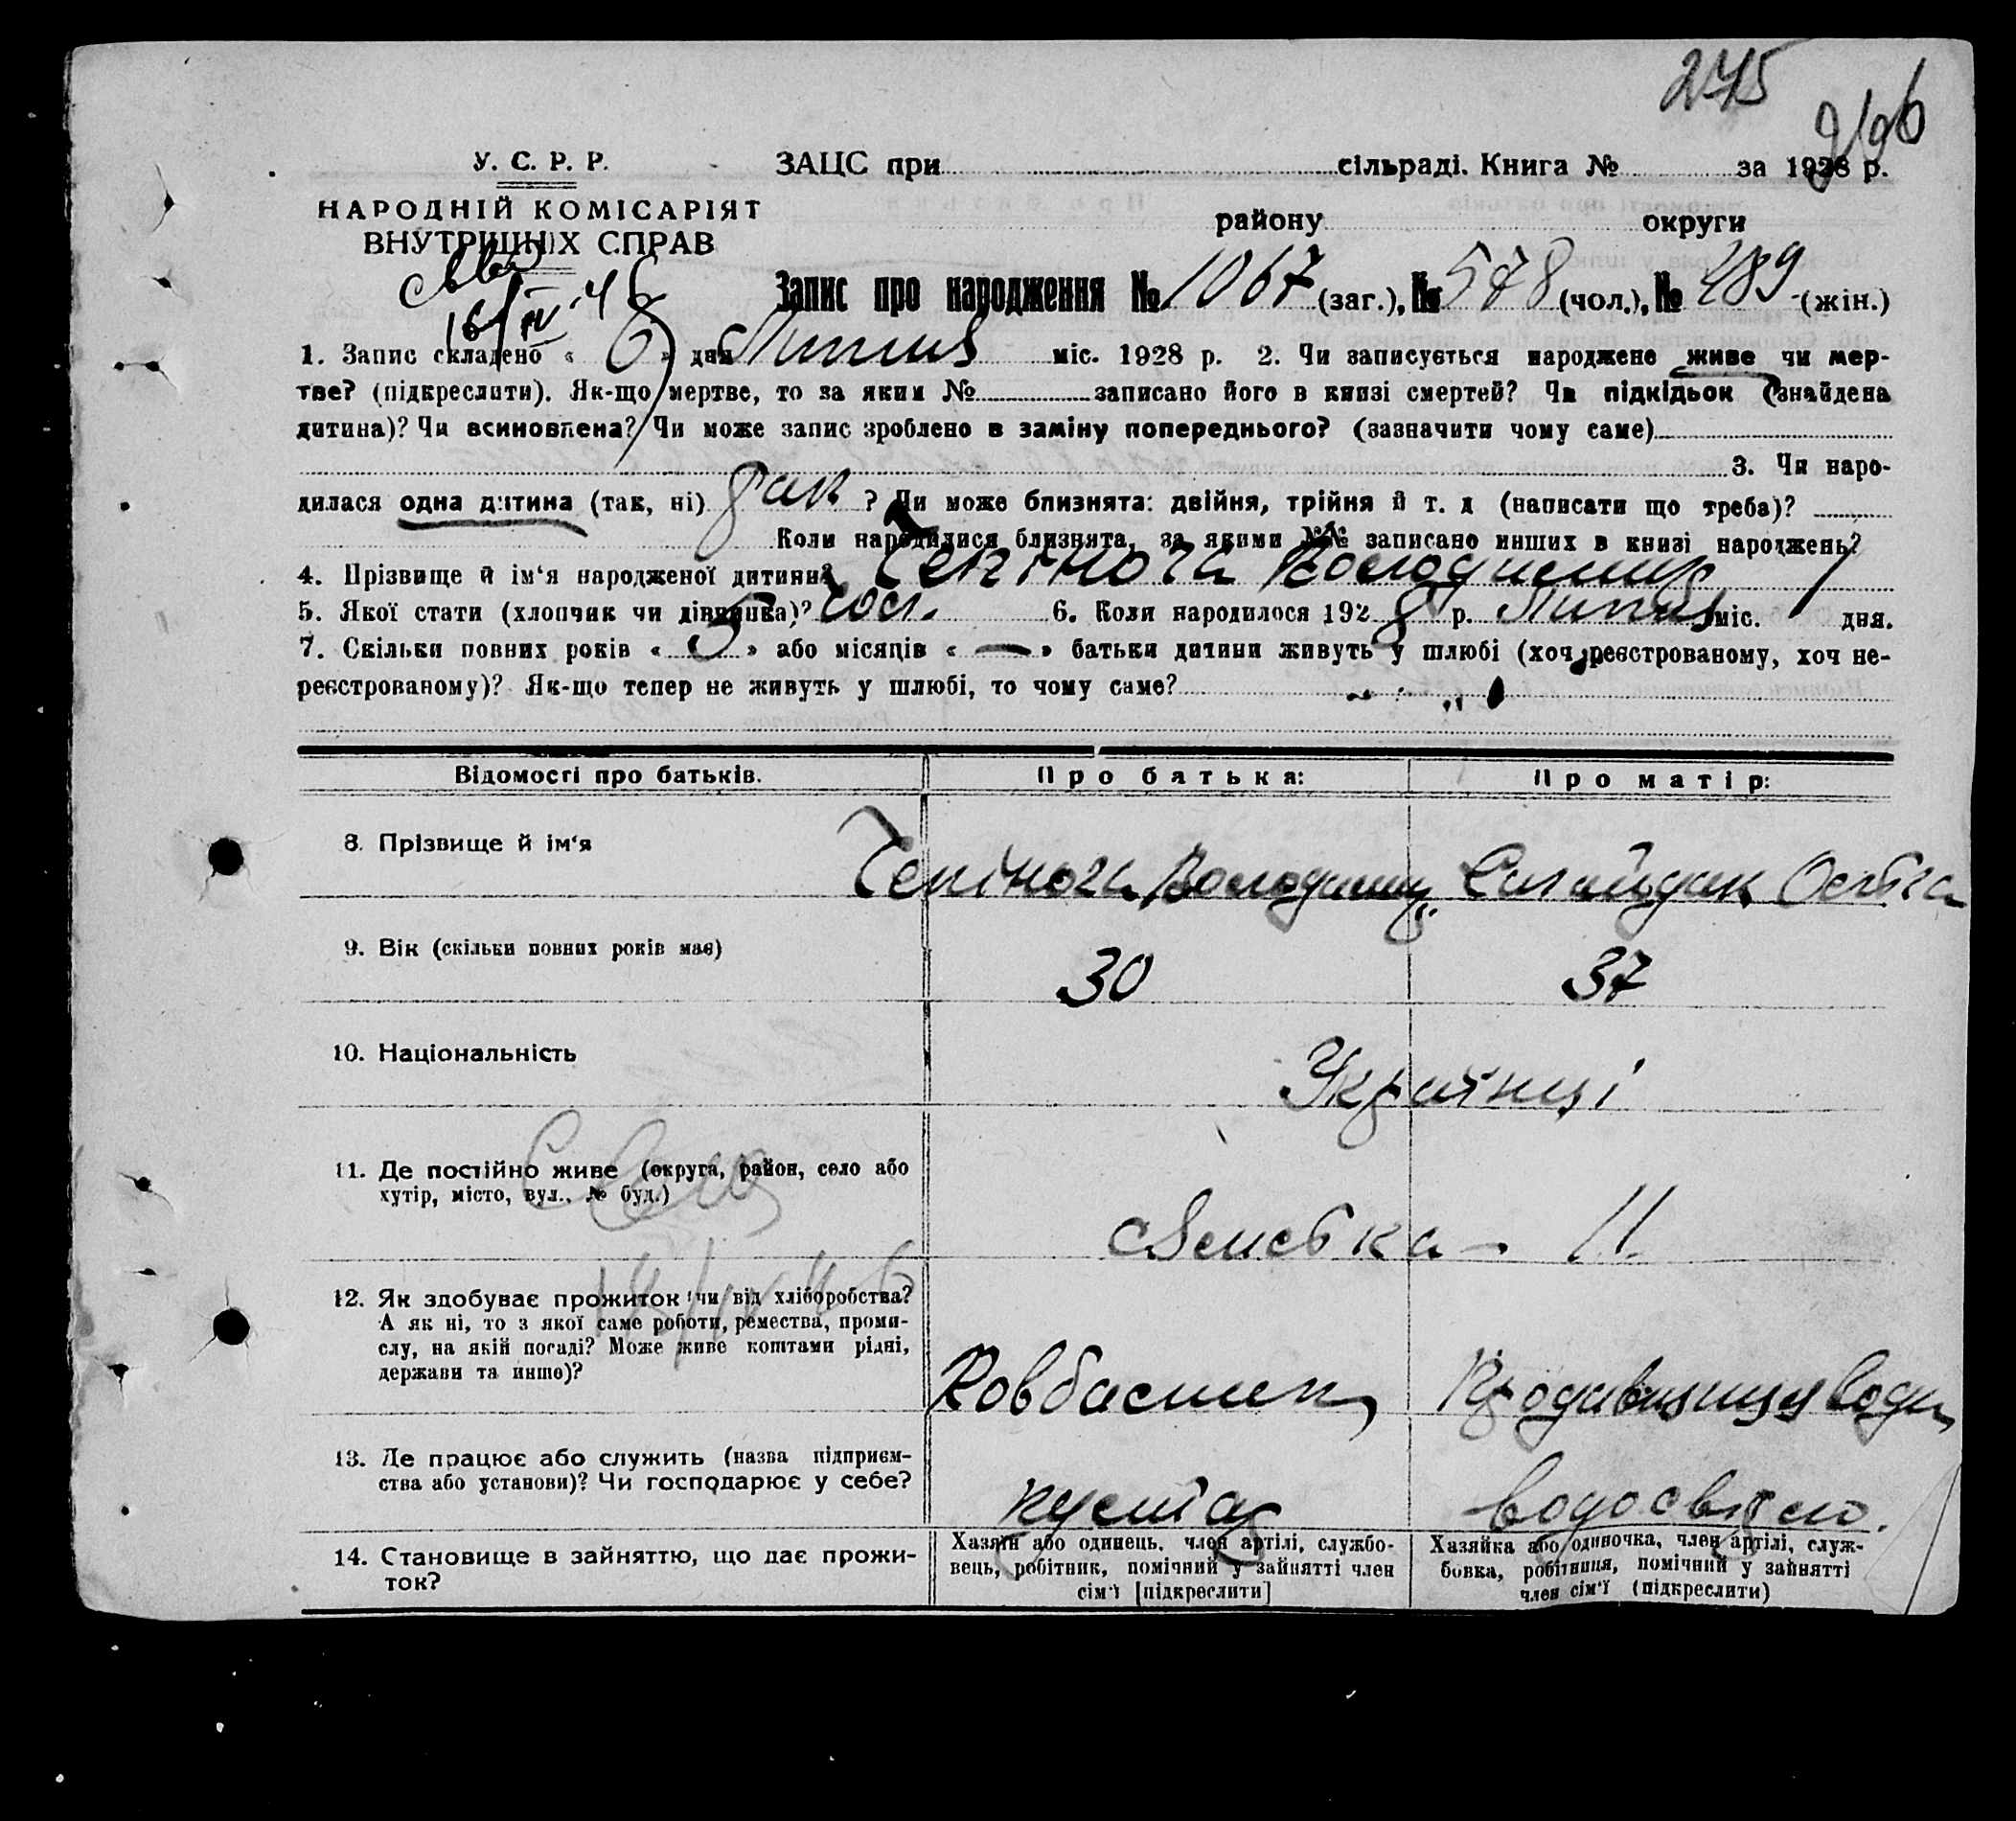 275
У. С. Р. Р.
ЗАЦС при сільраді. Книга № за 1928 р.
НАРОДНІЙ КОМІСАРІЯТ
ВНУТРІШНІХ СПРАВ
району округи
16/IV 46
Запис про народження № 1067 (заг.), № 578 (чол.), № 489 (жін.)
1. Запис складено « 6 » дня Липня міс. 1928 р. 2. Чи записується народжене живе чи мер-
тве? (підкреслити). Як-що мертве, то за яким № записано його в книзі смертей? Чи підкідьок (знайдена
дитина)? Чи всиновлена? Чи може запис зроблено в заміну попереднього? (зазначити чому саме)
3. Чи наро-
дилася одна дитина (так, ні) так ? Чи може близнята: двійня, трійня й т. д (написати що треба)?
Коли народилися близнята, за якими №№ записано инших в книзі народжень?
4. Прізвище й ім‘я народженої дитини? Чепінога Володимир
5. Якої стати (хлопчик чи дівчинка)? чол. 6. Коли народилося 1928 р. Липня міс. 1 дня.
7. Скільки повних років « 5 » або місяців « — » батьки дитини живуть у шлюбі (хоч реєстрованому, хоч не-
реєстрованому)? Як-що тепер не живуть у шлюбі, то чому саме?
Відомості про батьків. Про батька: Про матір:
8. Прізвище й ім‘я Чепінога Володимир Сагайдак
9. Вік (скільки повних років має) 30 37
10. Національність Українці
11. Де постійно живе (округа, район, село або
хутір, місто, вул., № буд.)
11.
12. Як здобуває прожиток чи від хліборобства?
А як ні, то з якої саме роботи, ремества, проми-
слу, на якій посаді? Може живе коштами рідні,
держави та инше)?
Ковбасник Продавщиця води
13. Де працює або служить (назва підприєм-
ства або установи)? Чи господарює у себе?
кустар водосвітло.
14. Становище в зайняттю, що дає прожи-
ток?
Хазяїн або одинець, член артілі, службо-
вець, робітник, помічний у зайнятті член
сім‘ї [підкреслити]
Хазяйка або одиночка, член артілі, служ-
бовка, робітниця, помічний у зайнятті
член сім‘ї (підкреслити)